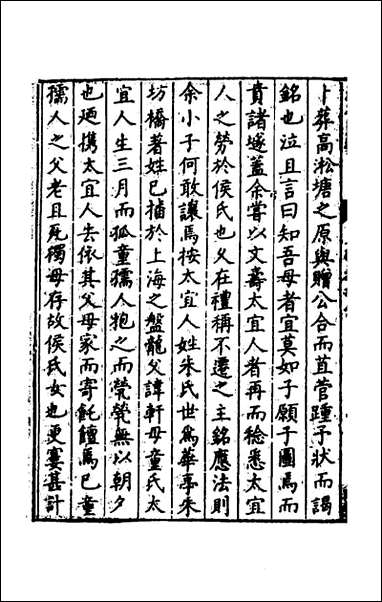 卜葬高淞塘之原與贈公合而苴菅踵子狀而謁
銘也泣且言曰知吾母者宜莫如子願子圖焉而
賁諸墜蓋余嘗以文壽太宜人者再而稔悉太宜
人之勞於侯氏也又在禮稱不遷之主銘應法則
余小子何敢讓焉按太宜人姓朱氏世爲華亭朱
坊橋著姓已插於上海之盤龍父諱軒母童氏太
宜人生三月而孤童孺人抱之而煢煢無以朝夕
也廼攜太宜人去依其父母家而寄飥饘焉已童
孺人之父老且死獨母存故侯氏女也更寠甚計